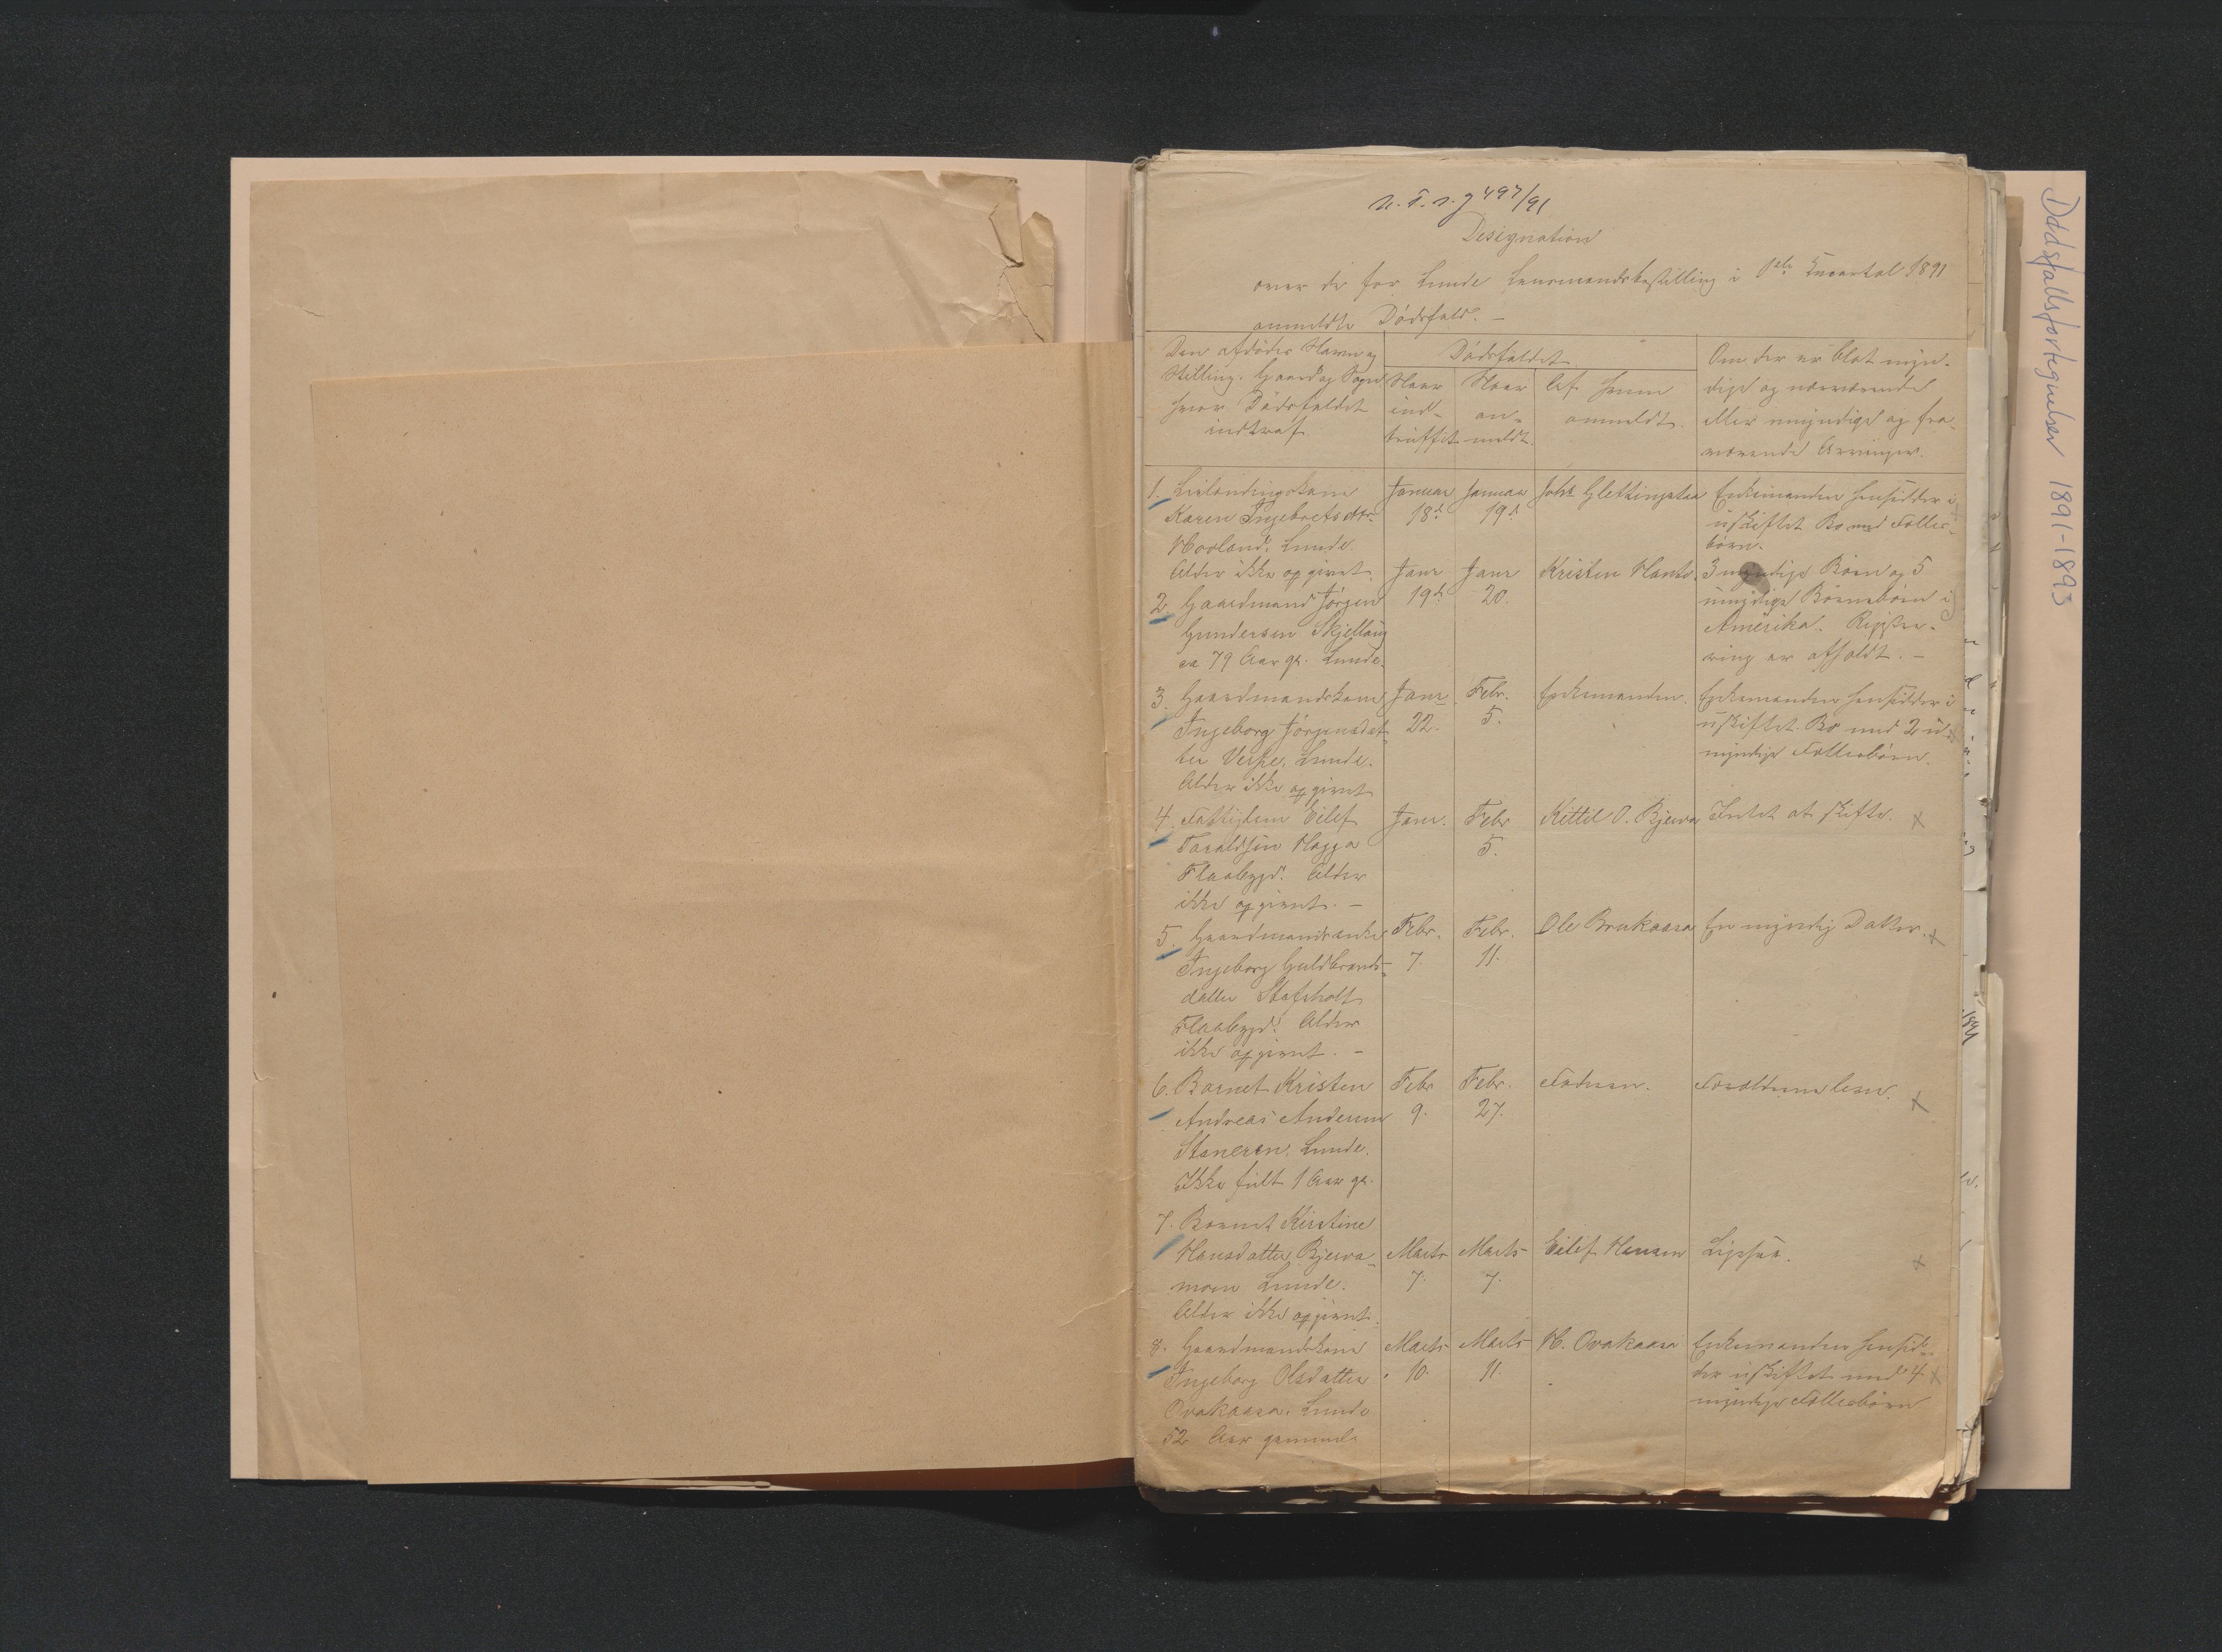 N. T. s. g 497/91
Designation
over de for Lunde Lensmandsbestilling i 1ste Kvartal 1891
anmeldte Dödsfald. –
Den afdödes Navn og
Stilling. Gaard og Sogn
hvor Dödsfaldet
indtraf
Dödsfaldet
Naar
ind-
truffet
Naar
an-
meldt.
Af hvem
anmeldt.
Om der er blot myn-
dige og nærværende
eller umyndige og fra-
værende Arvinger.
1. Leilændingskone
Karen Ingebretsdtr.
Hovland. Lunde.
Alder ikke opgivet.
Januar
18de
Januar
19de
Johs Glettingstaa
Enkemanden hensidder i
uskiftet Bo med Fælles-
börn.
2. Gaardmand Jörgen
Gundersen Skjellaug
ca 79 Aar gl. Lunde.
Janr
19de
Janr
20.
Kristen Hanto.
3 myndige Börn og 5
umyndige Börnebörn i
Amerika. Regitre-
ring er afholdt. –
3. Gaardmandskone
Ingeborg Jörgensdat-
ter Vespe, Lunde.
Alder ikke opgivet
Janr
22.
Febr.
5.
Enkemanden.
Enkemanden hensidder i
uskiftet Bo med 2 u-
myndige Fællesbörn.
4. Fattiglem Eilef
Taraldsen Hagga
Flaabygd. Alder
ikke opgivet. –
Janr.
Febr
5.
Kittil O. Bjerva
Intet at skifte.
5. Gaardmandsenke
Ingeborg Guldbrands-
datter Stafsholt
Flaabygd. Alder
ikke opgivet. –
Febr.
7.
Febr.
11.
Ole Brukaasa
En myndig Datter.
6. Barnet Kristen
Andreas Andersen
Staneren. Lunde.
Ikke fült 1 Aar gl.
Febr
9.
Febr.
27.
Faderen.
Forældrene leve.
7. Barnet Kirstine
Hansdatter Bjerva-
moen Lunde.
Alder ikke opgivet.
Marts
7.
Marts
7.
Eilef Hansen
Ligesaa.
8. Gaardmandskone
Ingeborg Olsdatter
Ovakaasa. Lunde
52 Aar gammel
Marts
10.
Marts
11.
H. Ovakaasa
Enkemanden hensid-
der uskiftet med 4
myndige Fællesbörn
Dødsfallsfortegnelser 1891-1893